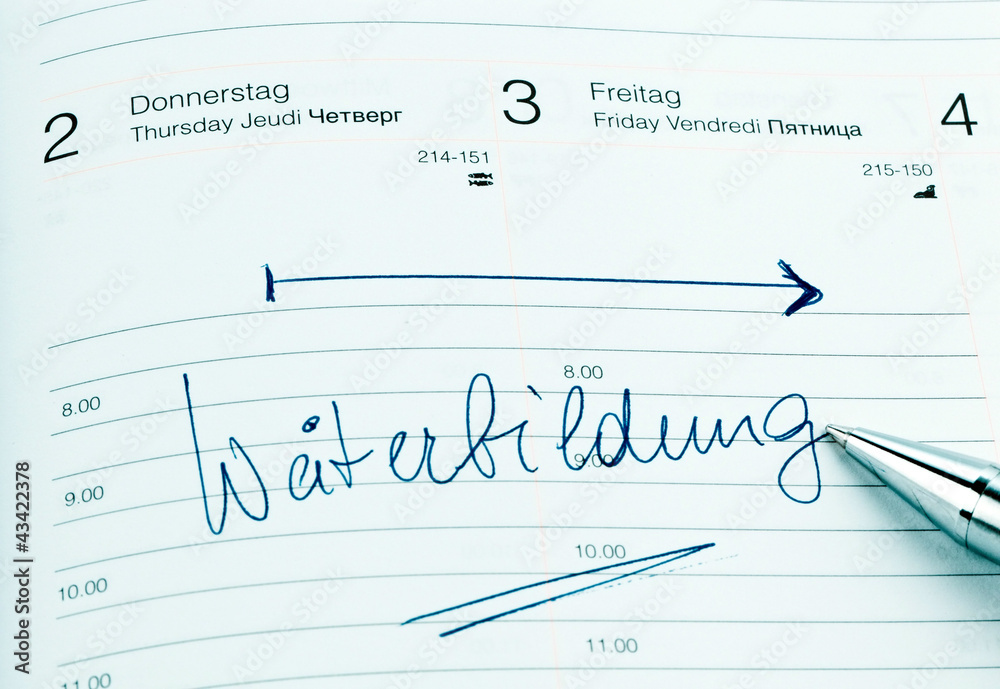 2 Donnerstag
Thursday Jeudi Четверг
214-151
3 Freitag
Friday Vendredi Пятница
215-150
4
8.00
8.00
Weiterbildung
9.00
9.00
10.00
10.00
11.00
11.00
Adobe Stock | #43422378